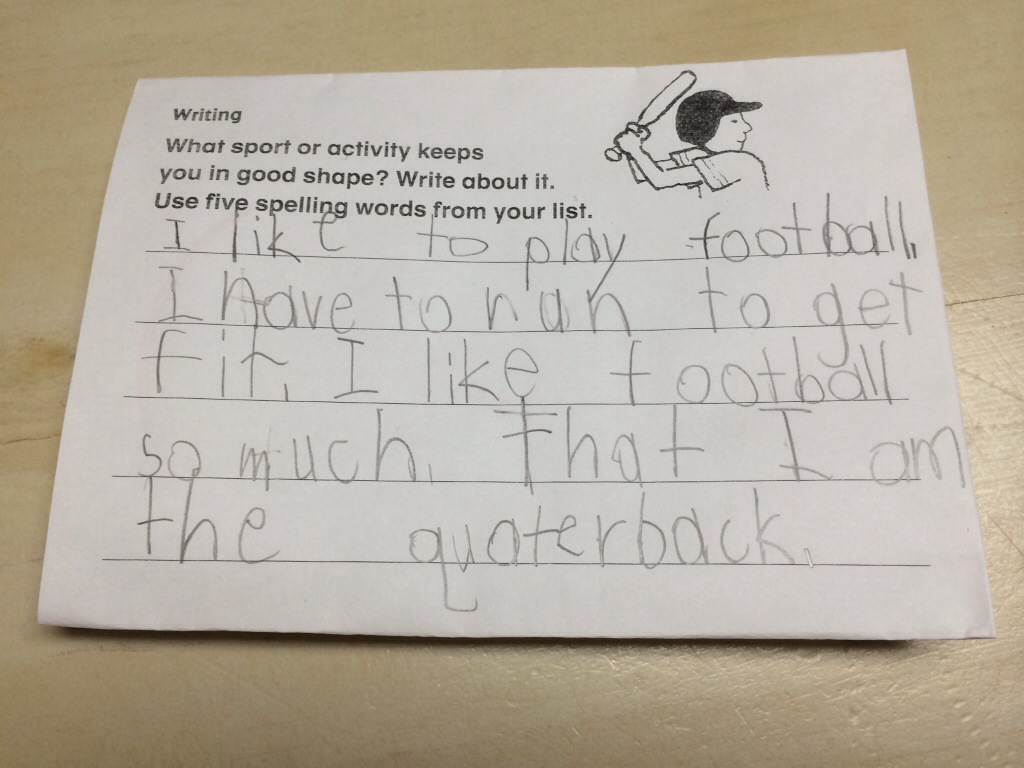 Writing
What sport or activity keeps
you in good shape? Write about it.
Use five spelling words from your list.
I like to play football.
I have to run to get
fit. I like football
so much. That I am
the quaterback.